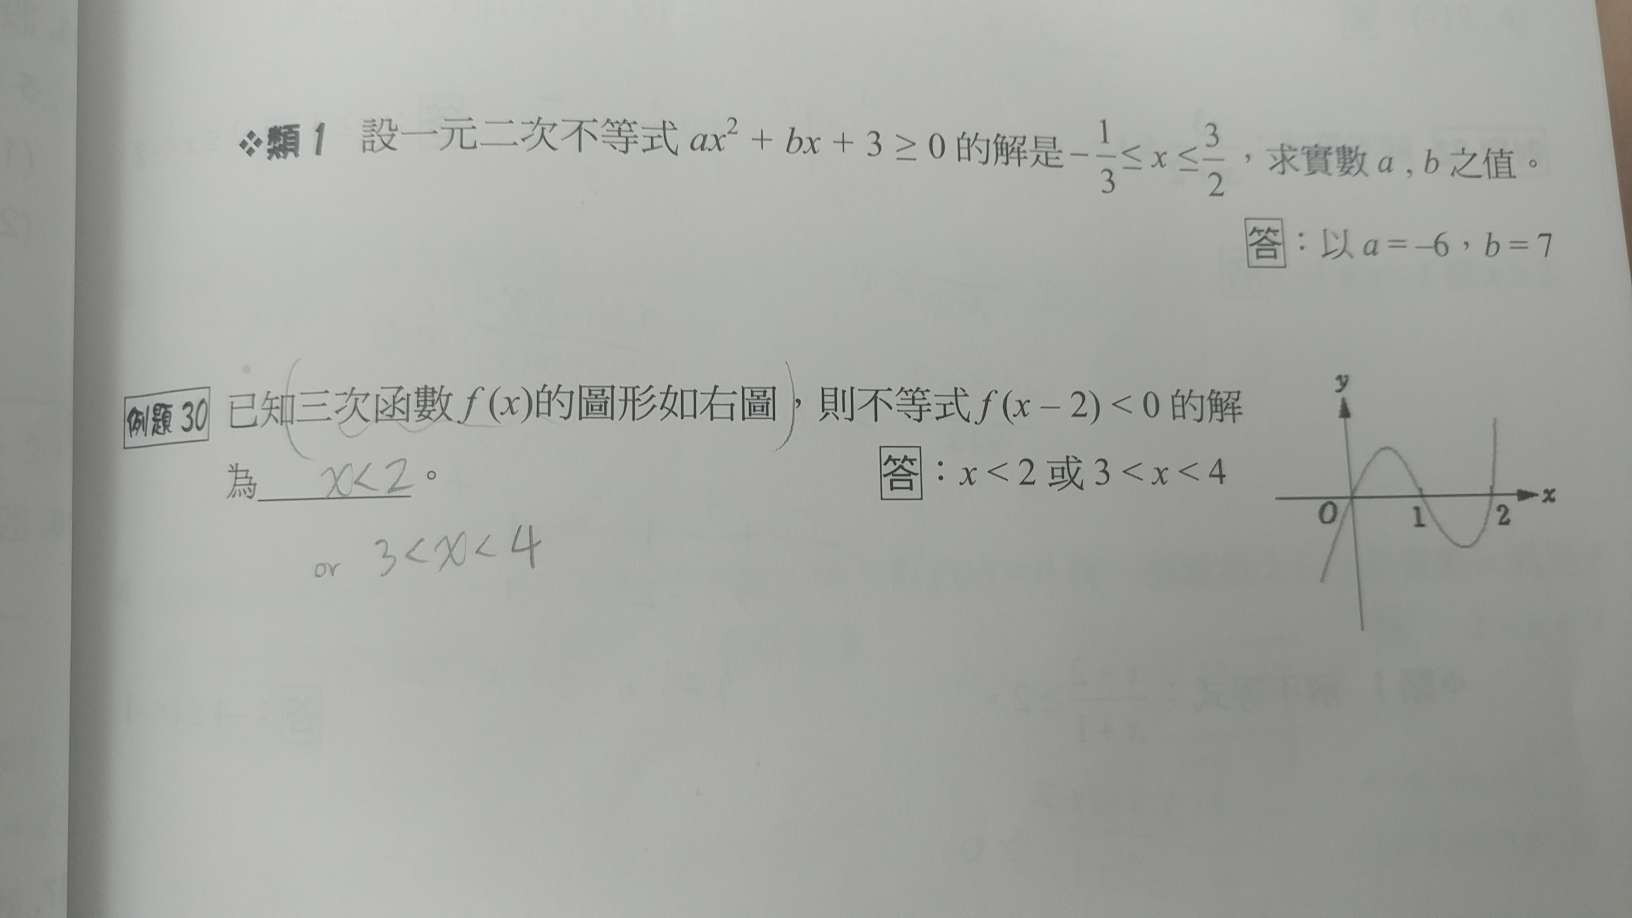 ❖類1 設一元二次不等式 ax² + bx + 3 ≥ 0 的解是 -1/3 ≤ x ≤ 3/2,求實數 a , b 之值。
答:以 a = –6,b = 7
例題 30 已知三次函數 f (x)的圖形如右圖,則不等式 f (x – 2) < 0 的解
為 x<2 。
答:x < 2 或 3 < x < 4
or 3<x<4
y
O 1 2 x